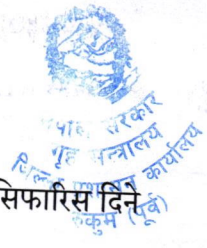 नेपाल सरकार
गृह मन्त्रालय
जिल्ला प्रशासन कार्यालय
रुकुम (पूर्व)
सिफारिस दिने